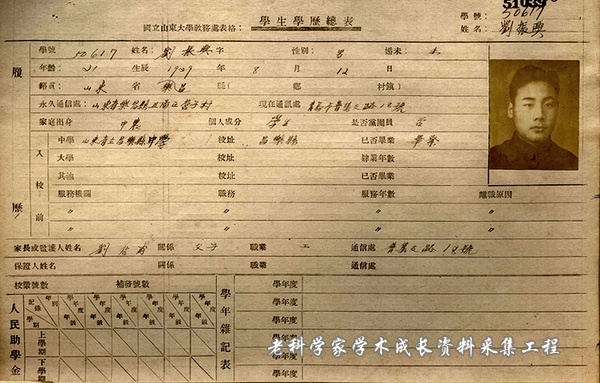 51039
國立山東大學教務處表格： 學生學歷總表 學號： 50617
姓名： 劉振興
履歷
學號 50617 姓名 劉振興 性別 男 婚未 未
年齡 21 生辰 1929 年 8 月 12 日
籍貫： 山東 省 樂昌 縣(鄉) 鄉 村鎮(
永久通信處： 現在通訊處
家庭出身 中農 個人成分 學生 是否黨團員 否
入校前
中學 校址 昌樂縣 已否畢業 畢業
大學 校址 肄業年數
其他 校址 已否畢業
服務機關 職務 服務年數 離職原因
〃 〃 〃 〃
〃 〃 〃 〃
家長或監護人姓名 劉 關係 父子 職業 工 通信處
保證人姓名 關係 職業 通信處
校徽號數 補發號數
人民助學金
記錄 年別 學期
學年度 年級 學年度 年級 學年度 年級 學年度 年級
上學期
下學期
學年雜記表
學年度
學年度
學年度
學年度
學年度
老科学家学术成长资料采集工程